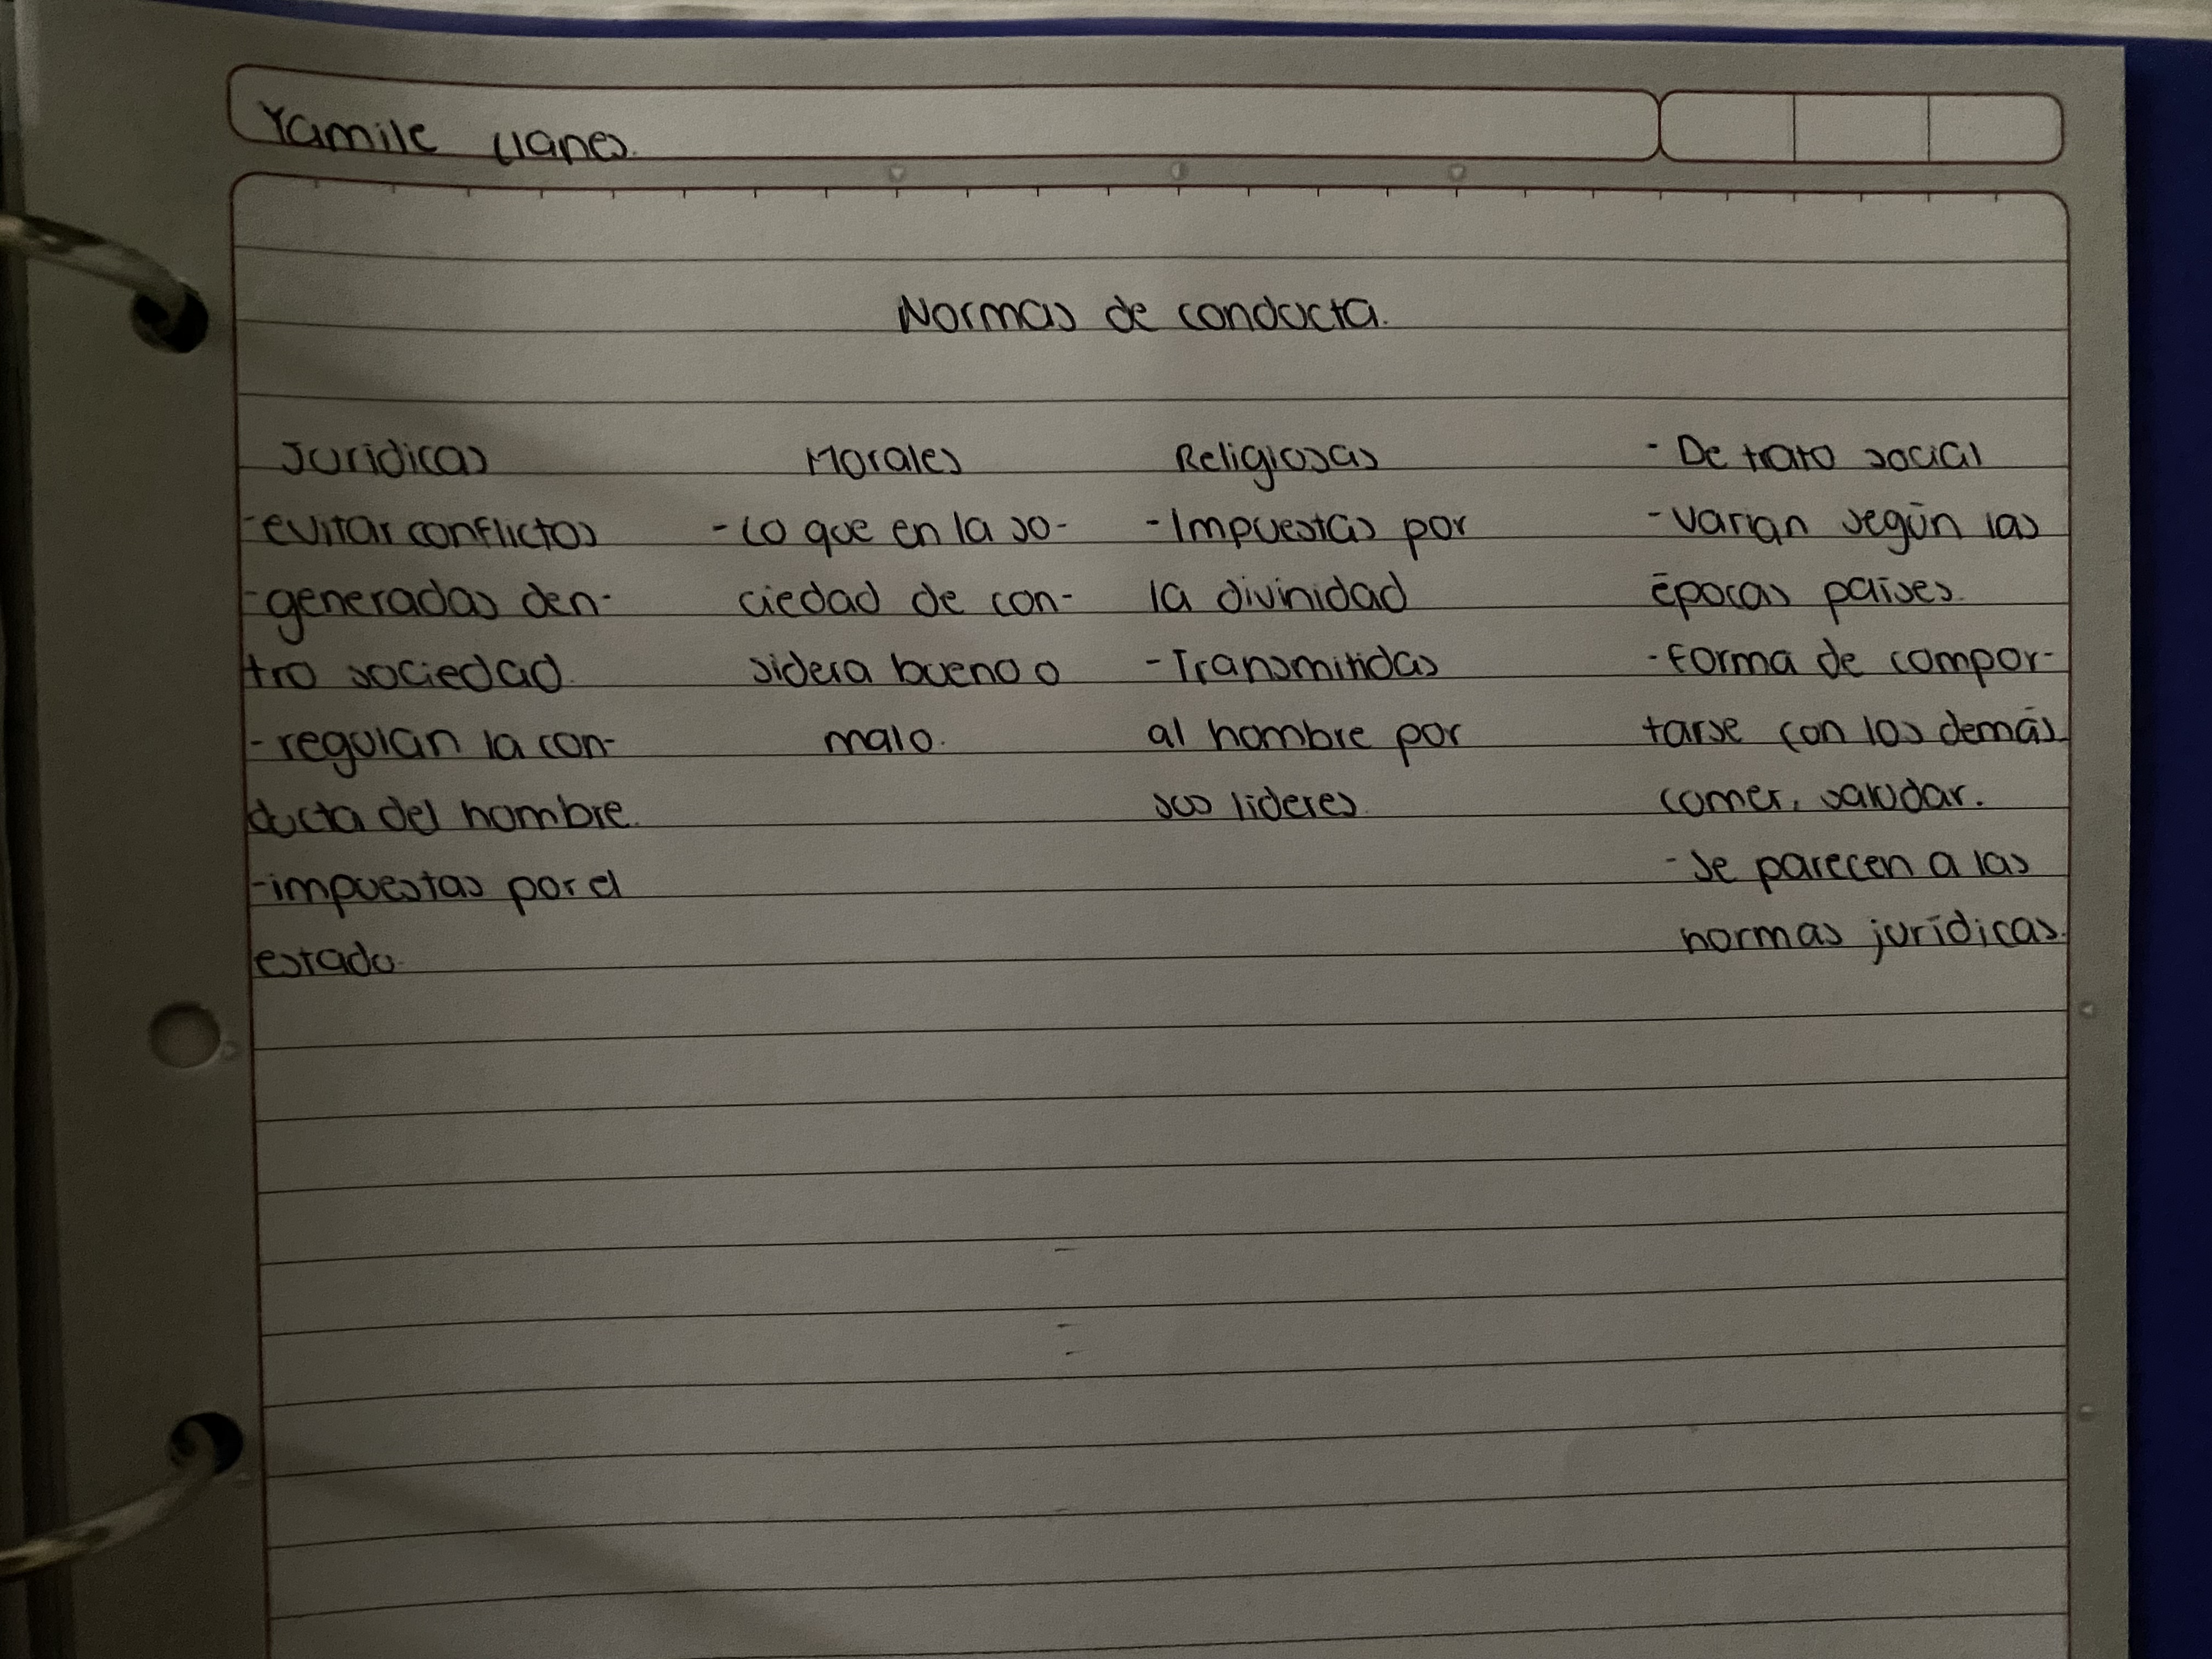 Yamile Llanes.
Normas de conducta.
Jurídicas
-evitar conflictos
-generadas den-
tro sociedad.
-regulan la con-
ducta del hombre.
-impuestas por el
estado.
Morales
-Lo que en la so-
ciedad de con-
sidera bueno o
malo.
Religiosas
-Impuestas por
la divinidad
-Transmitidas
al hombre por
sus lideres.
- De trato social
-varian según las
épocas países.
-forma de compor-
tarse con los demás
comer, saludar.
-Se parecen a las
normas jurídicas.